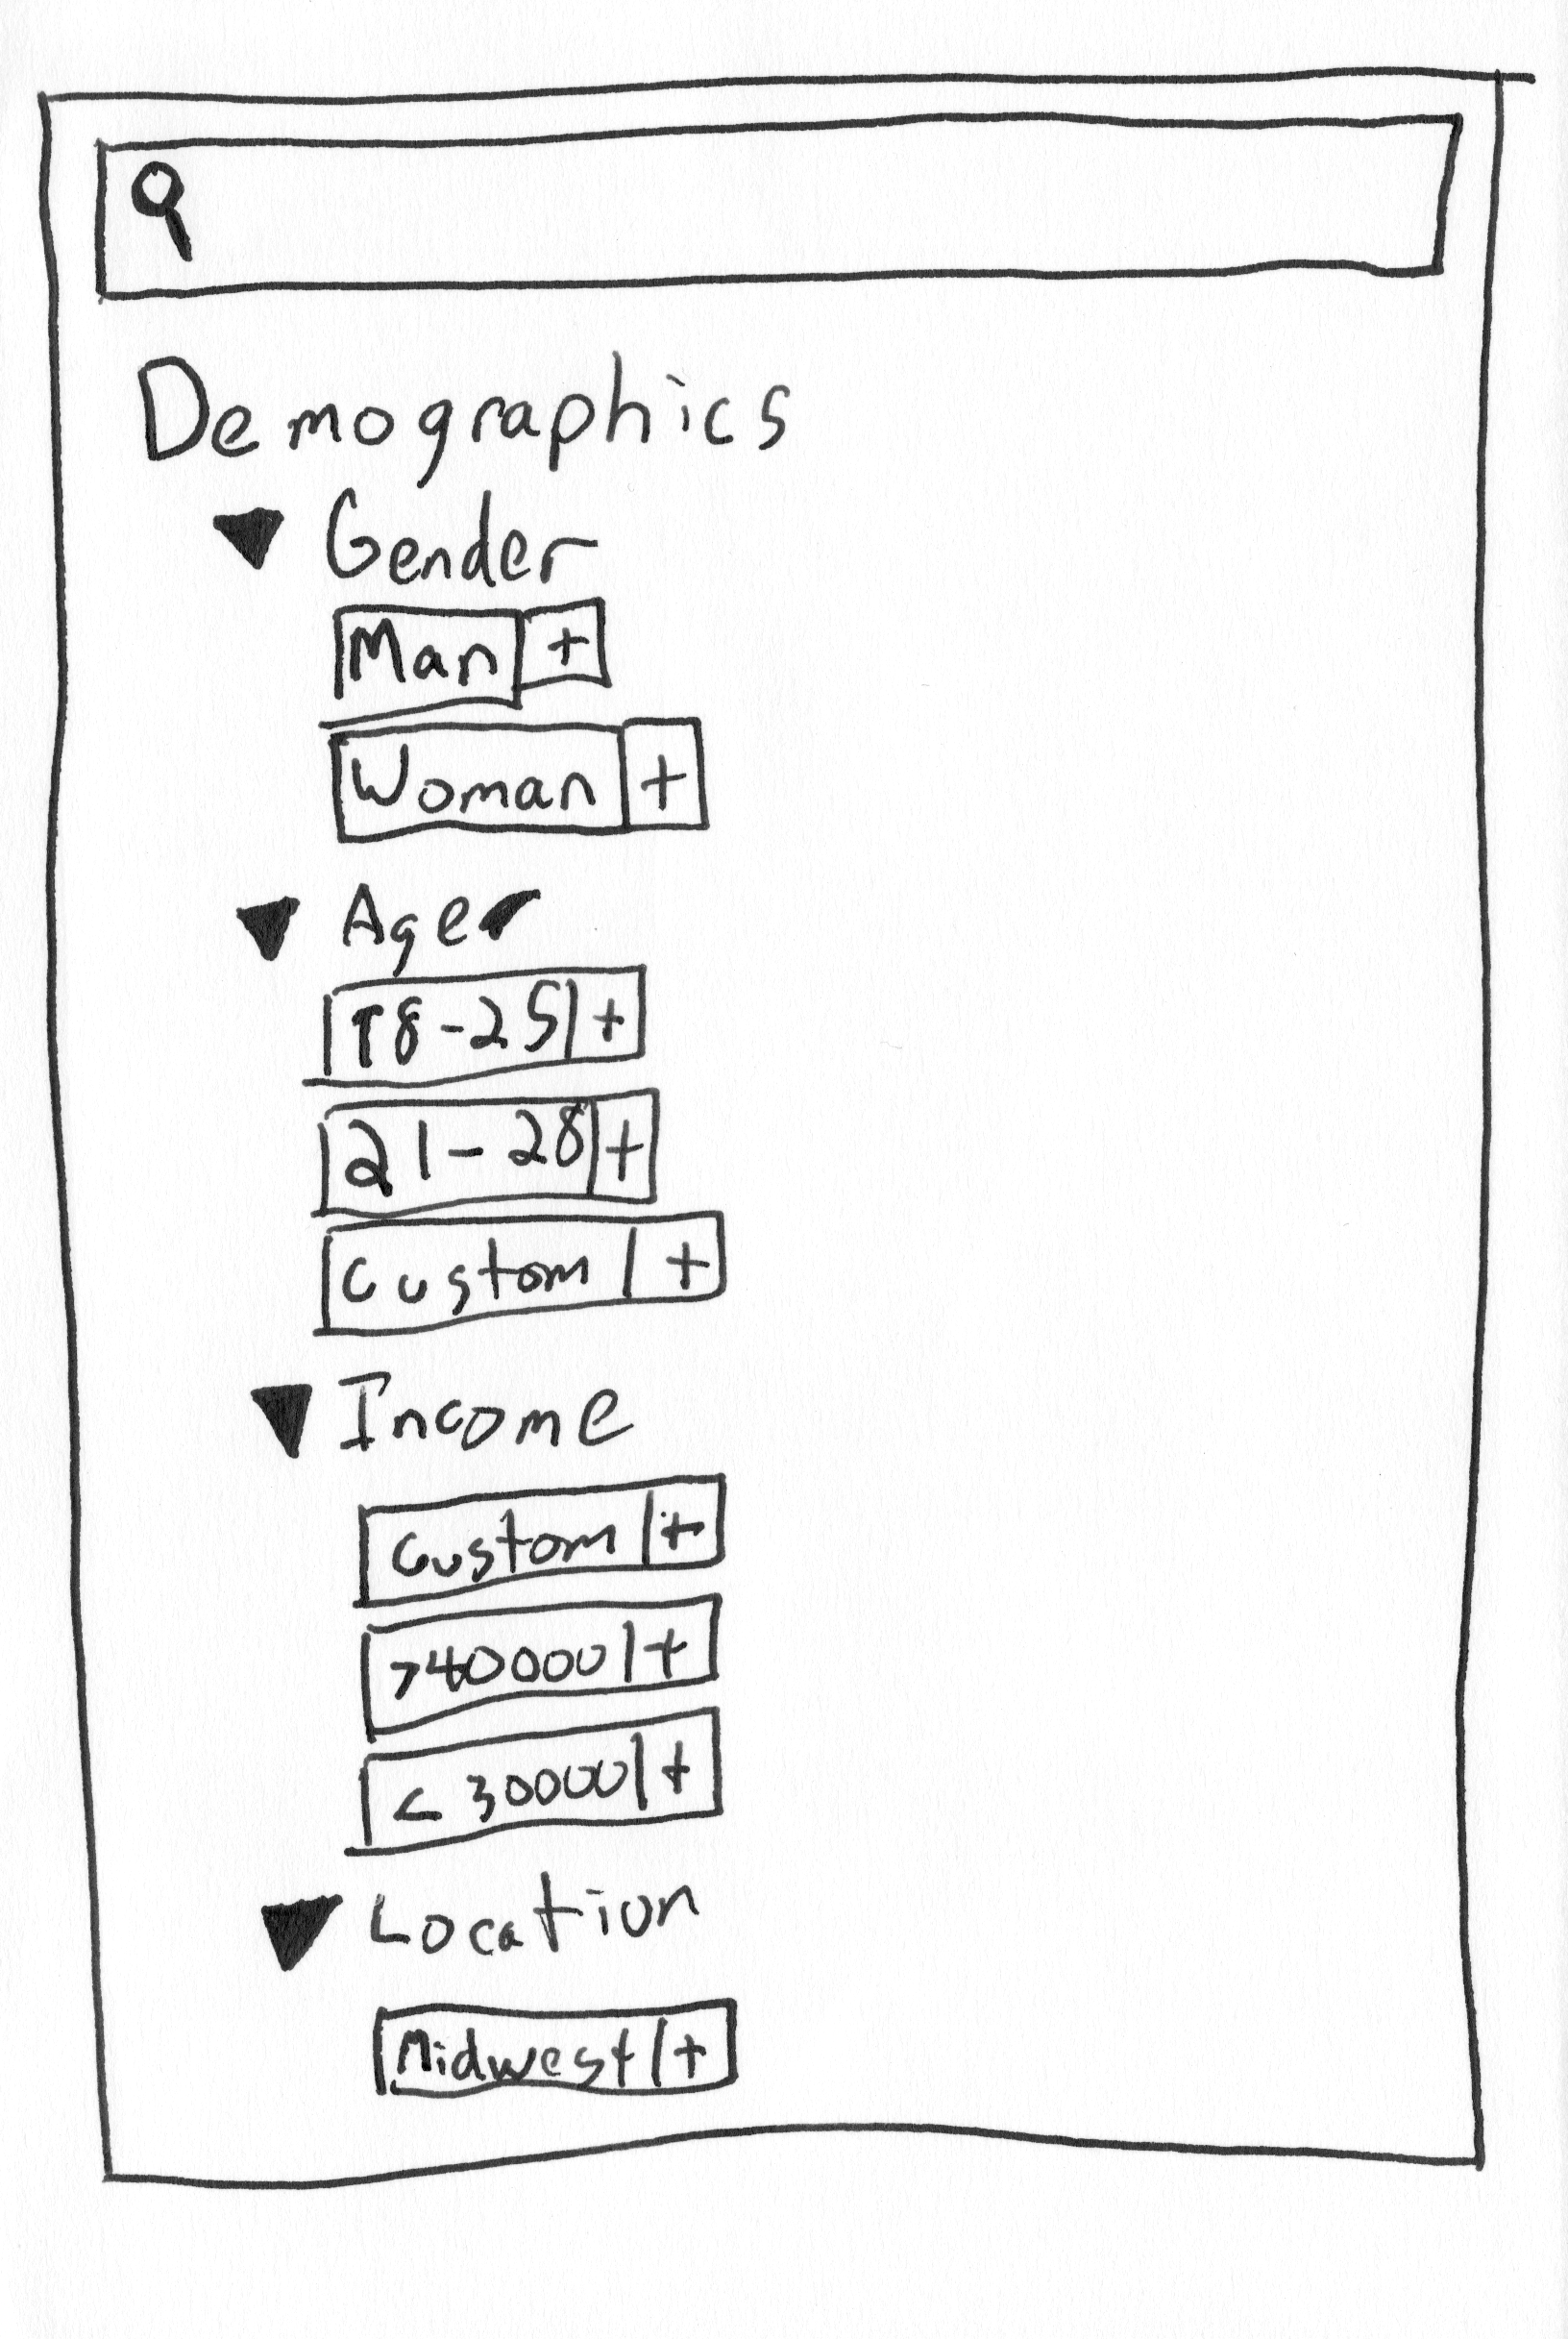 Demographics
▼ Gender
Man +
Woman +
▼ Age
18-25 +
21-28 +
Custom +
▼ Income
Custom +
>40000 +
< 30000 +
▼ Location
Midwest +